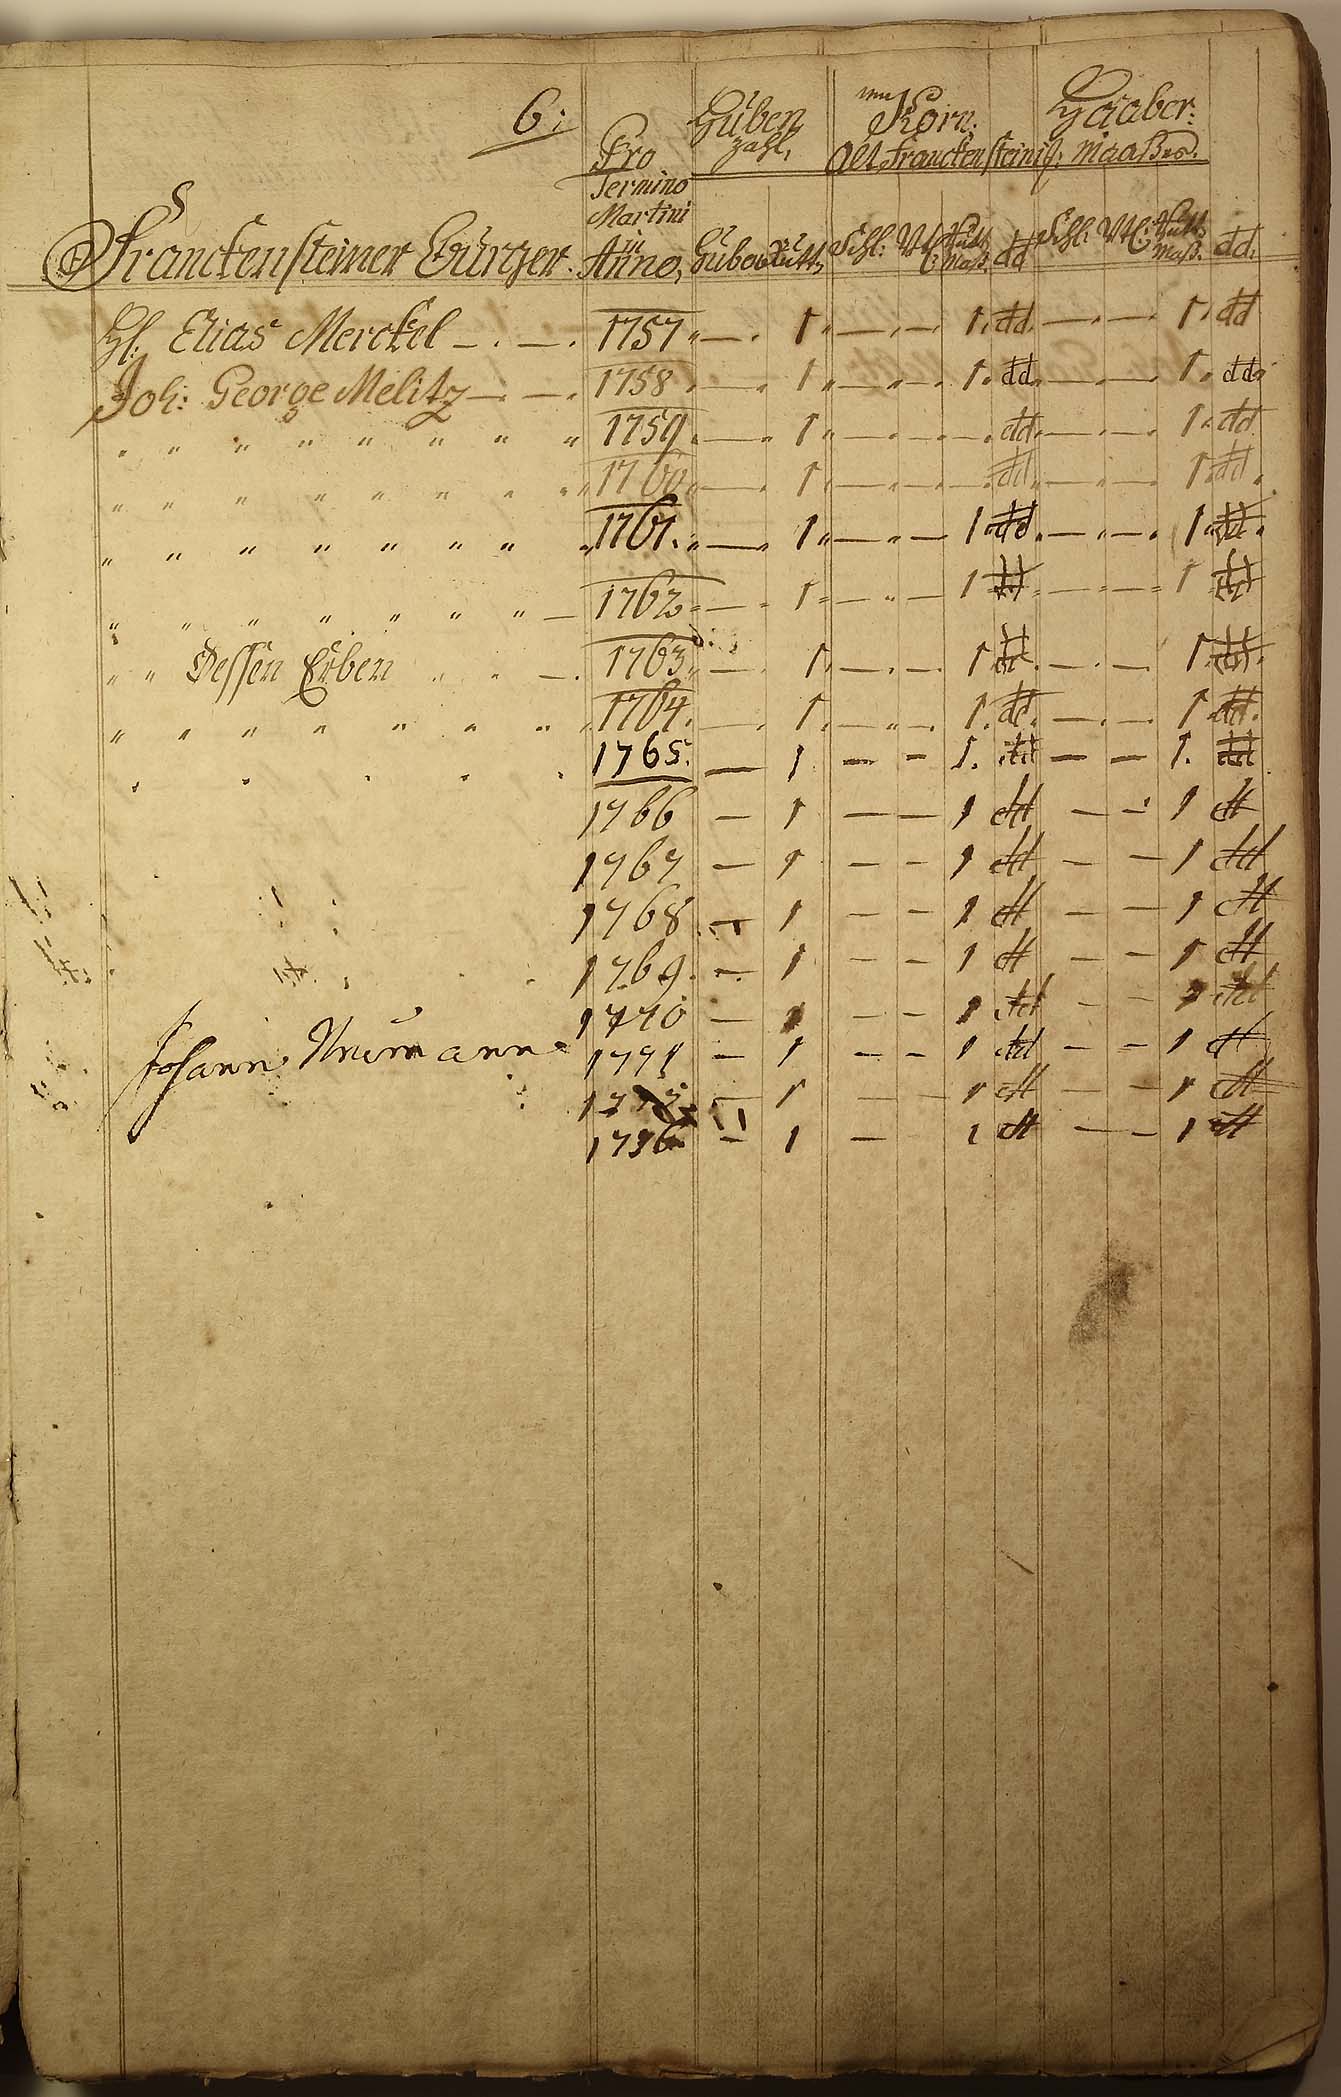 6:
Pro Huben Korn. Haaber:
zahl, Alt Franckensteinis: Maaßes.
Termino
Martini
in
Franckensteiner Bürger. Anno, Huben Rutt, Schl: Vtl: Hutt Maß. dd Schl: Vtl: Hutt Maß. dd.
Hl. Elias Merckel — . — . 1757 „ — . 1 „ — . — . 1. dd. — . — . 1. dd
Joh: George Melitz — . — . 1758 . — „ 1 „ — . — . 1. dd. — . — . 1. dd.
„ „ „ „ „ „ „ „ 1759 . — „ 1 „ — . — . dd. — . — . 1. dd
„ „ „ „ „ „ „ „ 1760 „ — . 1 . — . — . dd. — . — . 1. dd.
„ „ „ „ „ „ „ „ 1761. „ — „ 1 „ — „ — 1. dd. — „ — . 1. dd.
„ „ „ „ „ „ „ — 1762 „ — „ 1 „ — „ — 1 dd „ — — „ 1 dd
„ „ Dessen Erben „ „ — . 1763 „ — . 1. — . — . 1. dd. — . — 1. dd.
„ „ „ „ „ „ „ „ 1764. — . 1. — „ — . 1. dd. — . — . 1. dd.
„ „ „ „ „ 1765. — 1 — — 1. dd — — 1. dd
1766 — 1 — — 1 dd — — 1 dd
1767 — 1 — — 1 dd — — 1 dd
1768 — 1 — — 1 dd — — 1 dd
1769. — 1 — — 1 dd — — 1 dd
1770 — 1 — — 1 dd — — 1 dd
Johann Neumann 1771 — 1 — — 1 dd — — 1 dd
— 1 — — 1 dd — — 1 dd
— 1 — 1 dd — — 1 dd